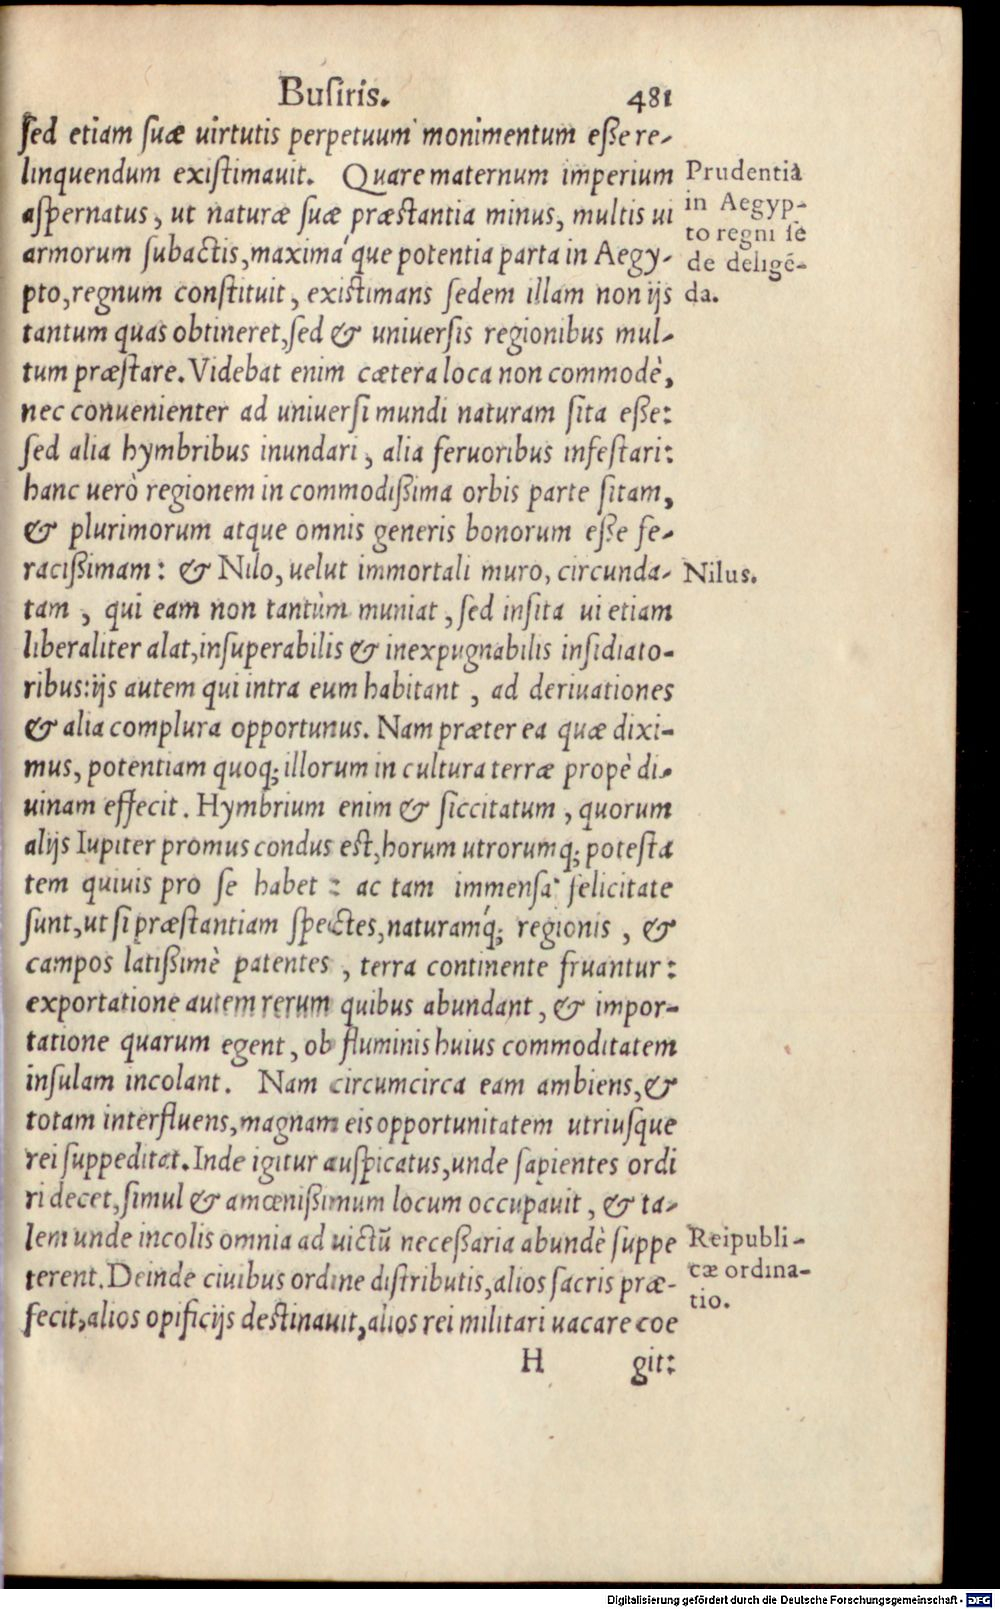 Busiris. 481
sed etiam suæ uirtutis perpetuum monimentum esse re-
linquendum existimauit. Quare maternum imperium
aspernatus, ut naturæ suæ præstantia minus, multis ui
armorum subactis, maximáque potentia parta in Aegy-
pto, regnum constituit, existimans sedem illam non ijs
tantum quas obtineret, sed & uniuersis regionibus mul-
tum præstare. Videbat enim cætera loca non commodè,
nec conuenienter ad uniuersi mundi naturam sita esse:
sed alia hymbribus inundari, alia feruoribus infestari:
hanc uerò regionem in commodissima orbis parte sitam,
& plurimorum atque omnis generis bonorum esse fe-
racissimam: & Nilo, uelut immortali muro, circunda-
tam, qui eam non tantùm muniat, sed insita ui etiam
liberaliter alat, insuperabilis & inexpugnabilis insidiato-
ribus: ijs autem qui intra eum habitant, ad deriuationes
& alia complura opportunus. Nam præter ea quæ dixi-
mus, potentiam quoq; illorum in cultura terræ propè di-
uinam effecit. Hymbrium enim & siccitatum, quorum
alijs Iupiter promus condus est, horum utrorumq; potesta
tem quiuis pro se habet: ac tam immensa felicitate
sunt, ut si præstantiam spectes, naturamq́; regionis, &
campos latissimè patentes, terra continente fruantur:
exportatione autem rerum quibus abundant, & impor-
tatione quarum egent, ob fluminis huius commoditatem
insulam incolant. Nam circumcirca eam ambiens, &
totam interfluens, magnam eis opportunitatem utriusque
rei suppeditat. Inde igitur auspicatus, unde sapientes ordi
ri decet, simul & amœnissimum locum occupauit, & ta-
lem unde incolis omnia ad uictū necessaria abundè suppe
terent. Deinde ciuibus ordine distributis, alios sacris præ-
fecit, alios opificijs destinauit, alios rei militari uacare coe
H git:
Prudentia
in Aegyp-
to regni se
de deligē-
da.
Nilus.
Reipubli-
cæ ordina-
tio.
Digitalisierung gefördert durch die Deutsche Forschungsgemeinschaft - DFG